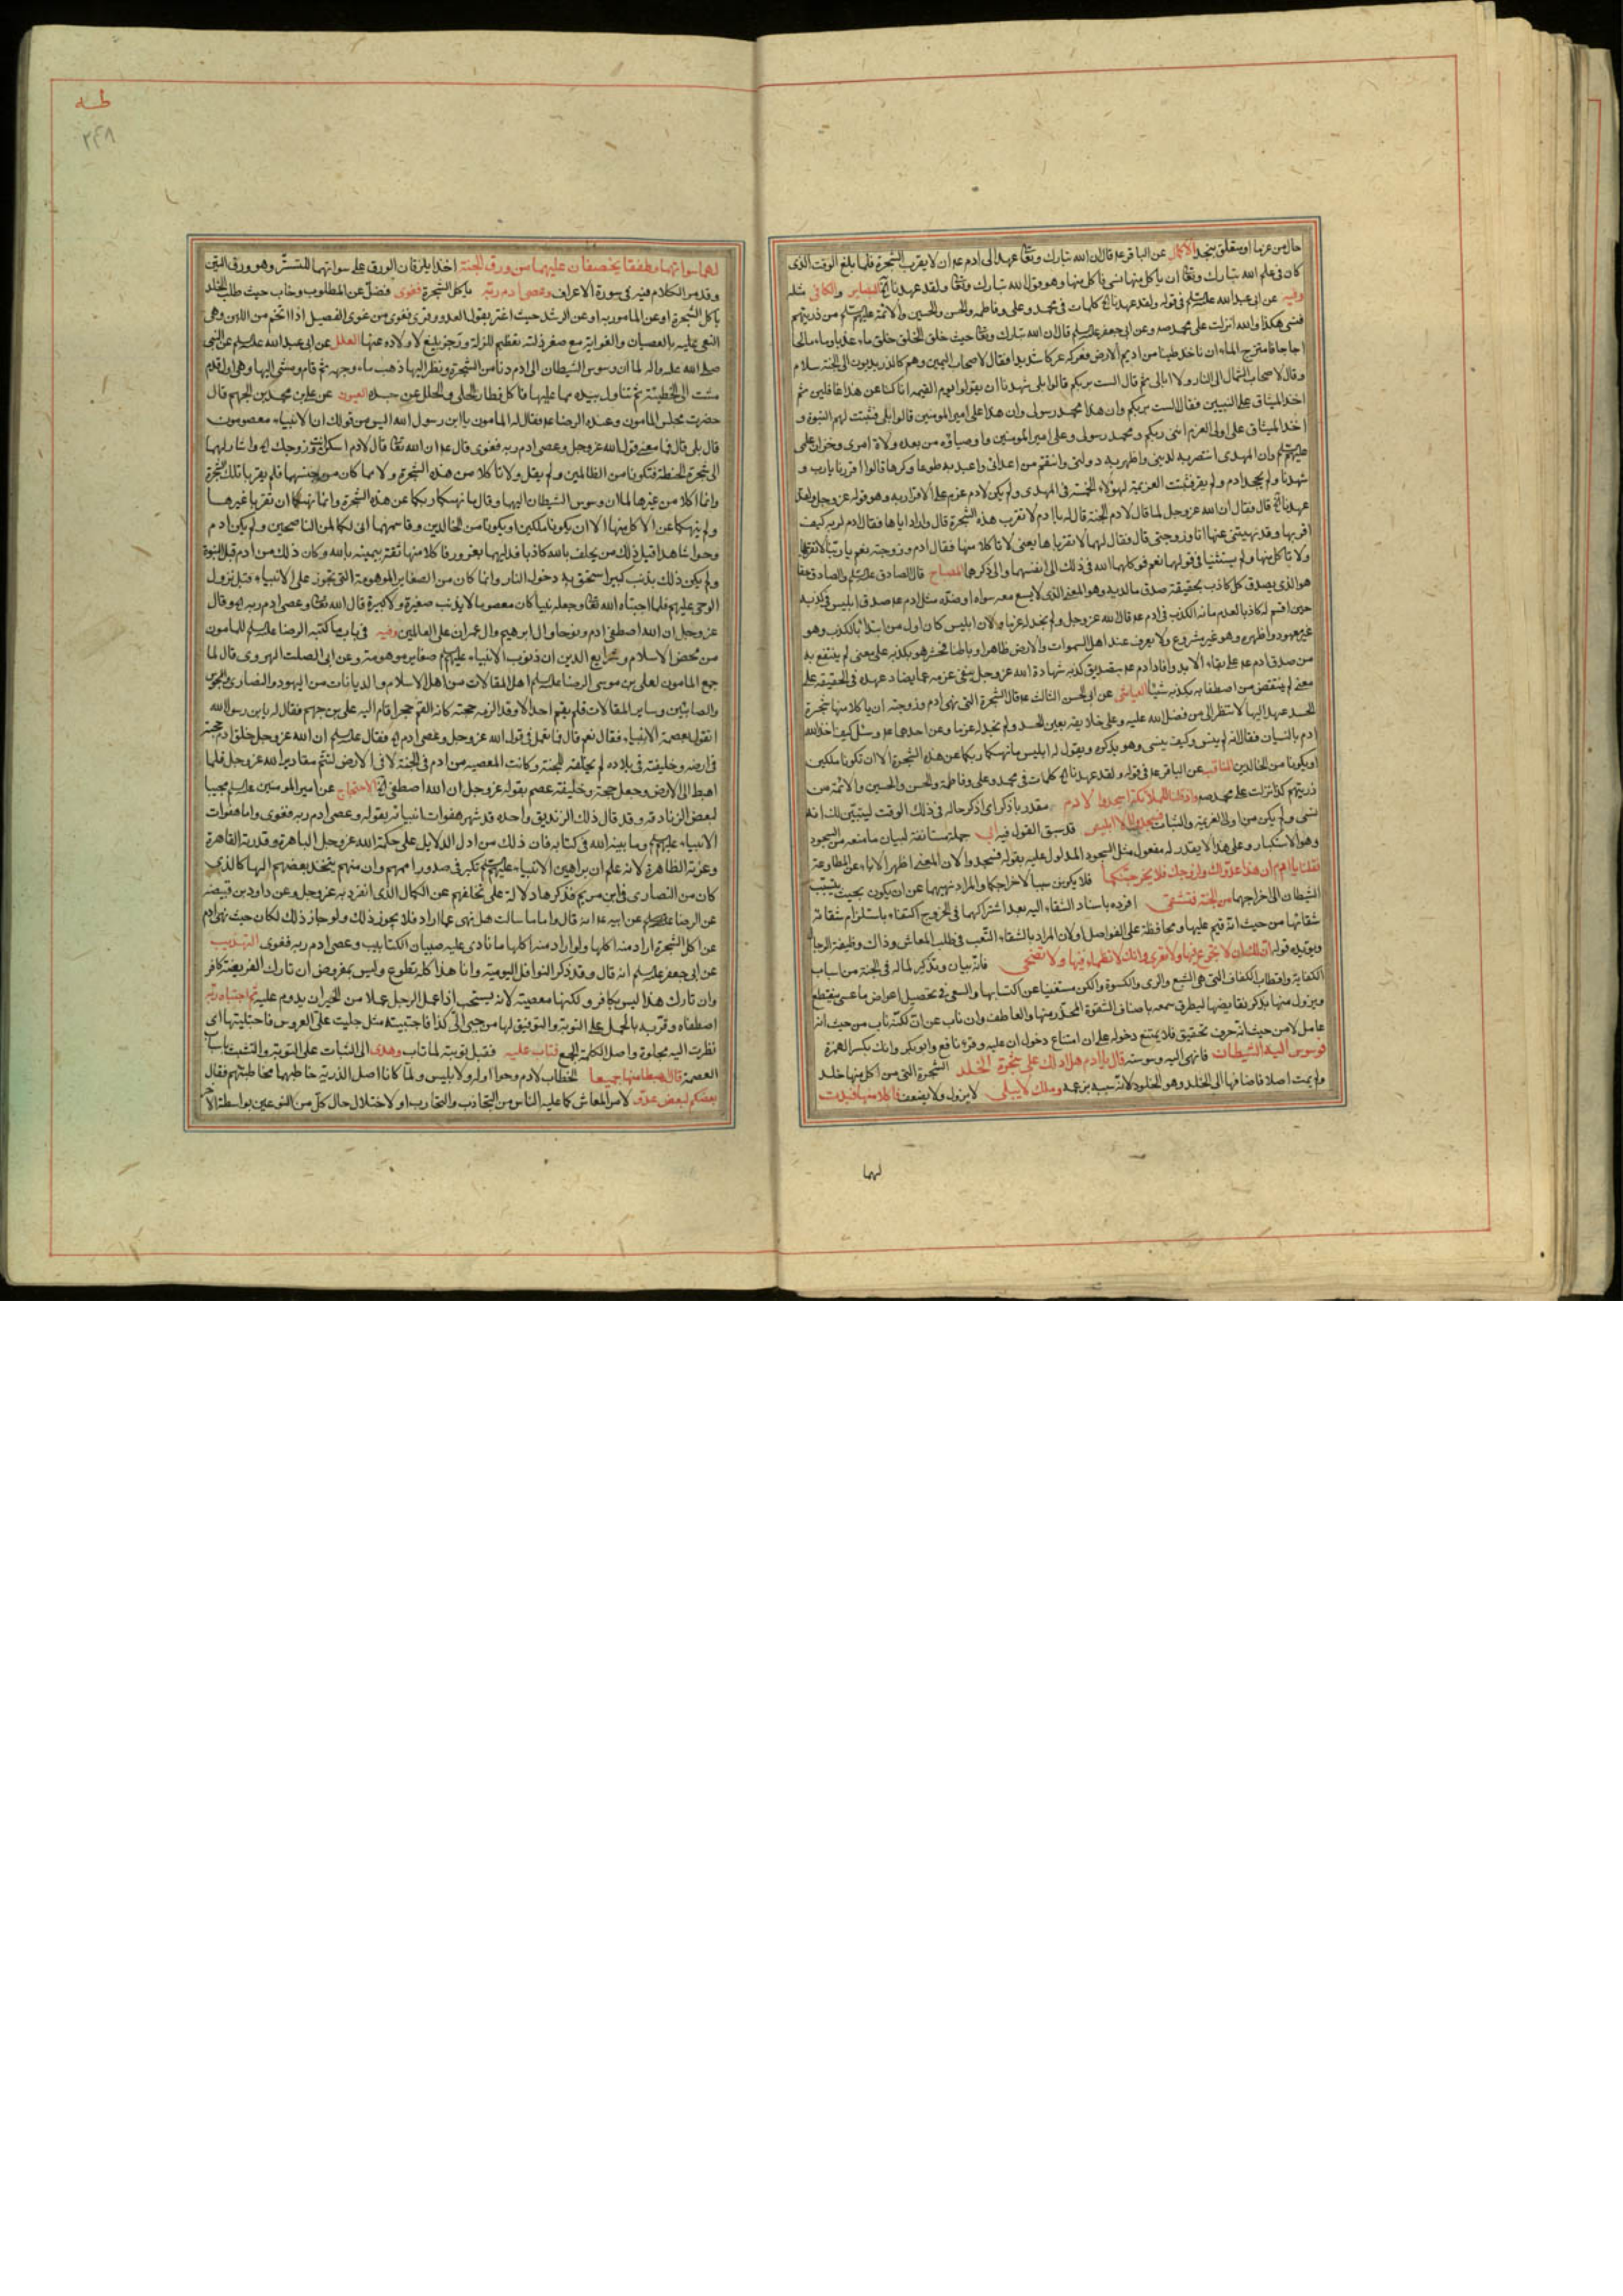 حال من عزما او متعلق بنجد الاكمال عن الباقر ع قال ان الله تبارك وتعا عهد الى ادم ع ان لا يقرب الشجرة فلما بلغ الوقت الذى
كان فى علم الله تبارك وتعا ان ياكل منها نسى فاكل منها وهو قول الله تبارك وتعا ولقد عهدنا الخ والكافى مثله
وفيه عن ابى عبد الله عليه السلام فى قوله ولقد عهدنا الخ كلمات فى محمد وعلى وفاطمه والحسن والحسين والائمة عليهم السلام من ذريتهم
فنسى هكذا والله انزلت على محمد صه وعن ابى جعفر عليه السلم قال ان الله تبارك وتعا حيث خلق الخلق خلق ماء عذبا وماء مالحا
اجاجا فامتزج الماءان فاخذ طينا من اديم الارض فعركه عركا شديدا فقال لاصحاب اليمين وهم كالذر يدبون الى الجنة بسلام
وقال لاصحاب الشمال الى النار ولا ابالى ثم قال الست بربكم قالوا بلى شهدنا ان يقولوا يوم القيمه انا كنا عن هذا غافلين ثم
اخذ الميثاق على النبيين فقال الست بربكم وان هذا محمد رسولى وان هذا على امير المومنين قالوا بلى فثبتت لهم النبوة و
اخذ الميثاق على اولى العزم اننى ربكم ومحمد رسولى وعلى امير المومنين واوصياؤه من بعده ولاة امرى وخزان علمى
عليهم السلم وان المهدى انتصر به لدينى واظهر به دولتى وانتقم من اعدائى واعبد به طوعا وكرها قالوا اقررنا يارب و
شهدنا ولم يجحد ادم ولم يقر فثبتت العزيمة لهؤلاء الخمسة فى المهدى ولم يكن لادم عزم على الاقرار به وهو قوله عز وجل ولقد
عهدنا الخ قال فقال ان الله عز وجل لما قال لادم الجنة قال له يا ادم لا تقرب هذه الشجرة قال واراد اياها فقال ادم لربه كيف
اقربها وقد نهيتنى عنها انا وزوجتى قال فقال لهما لا تقرباها يعنى لا تاكلا منها فقال ادم وزوجته نعم يا ربنا لا نقربها
ولا ناكل منها ولم يستثنيا فى قولهما نعم فوكلهما الله فى ذلك الى انفسهما والى ذكرهما المصباح قال الصادق عليه السلم والصادق حقا
هو الذى يصدق كل كاذب بحقيقة صدق ما لديه وهو المعنى الذى لا يسع معه سواه او ضده مثل ادم ع صدق ابليس فى كذبه
حين اقسم له كاذبا لعدم ما به الكذب فى ادم ع قال الله عز وجل ولم نجد له عزما ولان ابليس كان اول من ابتدأ بالكذب وهو
غير معهود واظهره وهو غير مشروع ولا يعرف عند اهل السموات والارض ظاهرا وباطنا فخسر هو بكذبه على معنى لم ينتفع به
من صدق ادم ع على بقاء الابد وافاد ادم ع بتصديق كذبه شهادة الله عز وجل بنفى عزمه عما يضاد عهده فى الحقيقة على
معنى لم ينتقص من اصطفائه بكذبه شيئا العياشى عن ابى الحسن الثالث ع قال الشجرة التى نهى ادم وزوجته ان ياكلا منها شجرة
الحسد عهد اليهما لا تنظر الى من فضل الله عليه وعلى خلايقه بعين الحسد ولم نجد له عزما وعن احدهما ع وسئل كيف اخذ الله
ادم بالنسيان فقال انه لم ينس وكيف ينسى وهو يذكره ويقول له ابليس ما نهيكما ربكما عن هذه الشجرة الا ان تكونا ملكين
او تكونا من الخالدين المناقب عن الباقر ع فى قوله ولقد عهدنا الخ كلمات فى محمد وعلى وفاطمة والحسن والحسين والائمة من
ذريتهم كذا نزلت على محمد صه واذ قلنا للملئكة اسجدوا لادم مقدر باذكر اى اذكر حاله فى ذلك الوقت ليتبين لك انه
نسى ولم يكن من اولى العزيمة والثبات فسجدوا الا ابليس قد سبق القول فيه ابى جملة مستانفة لبيان ما منعه من السجود
وهو الاستكبار وعلى هذا لا يقدر له مفعول مثل السجود المدلول عليه بقوله فسجدوا لان المعنى اظهر الاباء عن المطاوعة
فقلنا يا ادم ان هذا عدو لك ولزوجك فلا يخرجنكما فلا يكونن سببا لاخراجكما والمراد نهيهما عن ان يكون بحيث يتسبب
الشيطان الى اخراجهما من الجنة فتشقى افرده باسناد الشقاء اليه بعد اشتراكهما فى الخروج اكتفاء باستلزام شقائه
شقائها من حيث انه قيم عليها ومحافظة على الفواصل او لان المراد بالشقاء التعب فى طلب المعاش وذلك وظيفة الرجال
ويؤيده قوله ان لك ان لا تجوع فيها ولا تعرى وانك لا تظمأ فيها ولا تضحى فانه بيان وتذكير لما له فى الجنة من اسباب
الكفاية واقطاب الكفاف التى هى الشبع والرى والكسوة والكن مستغنيا عن اكتسابها والسعى فى تحصيل اعراض ما عسى ينقطع
ويزول منها بذكر نقايضها ليطرق سمعه باصناف الشقوة المحذر منها والعاطف وان ناب عن ان لكنه ناب من حيث انه
عامل لا من حيث انه حرف تحقيق فلا يمتنع دخوله على ان امتناع دخول ان عليه وقرء نافع وابو بكر وانك بكسر الهمزة
فوسوس اليه الشيطان فانهى اليه وسوسته قال يا ادم هل ادلك على شجرة الخلد الشجرة التى من اكل منها خلد
ولم يمت اصلا فاضافها الى الخلد وهو الخلود لانه سببه بزعمه وملك لا يبلى لا يزول ولا يضعف فاكلا منها فبدت
لهما
طه
٢٤٨
لهما سواتهما وطفقا يخصفان عليهما من ورق الجنة اخذا يلزقان الورق على سواتهما للتستر وهو ورق التين
وقد مر الكلام فيه فى سورة الاعراف وعصى ادم ربه باكل الشجرة فغوى فضل عن المطلوب وخاب حيث طلب الخلد
باكل الشجرة او عن المامور به او عن الرشد حيث اغتر بقول العدو وقرئ فغوى من غوى الفصيل اذا اتخم من اللبن وفى
النعى عليه بالعصيان والغواية مع صغر زلته تعظيم للزلة وزجر بليغ لاولاده عنها العلل عن ابى عبد الله عليه السلم عن النبى
صلى الله عليه واله لما ان وسوس الشيطان الى ادم دنا من الشجرة ونظر اليها ذهب ماء وجهه ثم قام ومشى اليها وهى اول قدم
مشت الى الخطيئة ثم تناول بيده مما عليها فاكل فطار الحلى والحلل عن جسده العيون عن على بن محمد بن الجهم قال
حضرت مجلس المامون وعنده الرضا ع فقال له المامون يا ابن رسول الله اليس من قولك ان الانبياء معصومون
قال بلى قال فما معنى قول الله عز وجل وعصى ادم ربه فغوى قال ع ان الله تعا قال لادم اسكن انت وزوجك الخ واشار لهما
الى شجرة الحنطة فتكونا من الظالمين ولم يقل ولا تاكلا من هذه الشجرة ولا مما كان من جنسها فلم يقربا تلك الشجرة
وانما اكلا من غيرها لما ان وسوس الشيطان اليهما وقال ما نهيكما ربكما عن هذه الشجرة وانما نهيكما ان تقربا غيرها
ولم ينهكما عن الاكل منها الا ان تكونا ملكين او تكونا من الخالدين وقاسمهما انى لكما لمن الناصحين ولم يكن ادم
وحوا شاهدا قبل ذلك من يحلف بالله كاذبا فدليهما بغرور فاكلا منها ثقة بيمينه بالله وكان ذلك من ادم قبل النبوة
ولم يكن ذلك بذنب كبير استحق به دخول النار وانما كان من الصغاير الموهوبة التى تجوز على الانبياء قبل نزول
الوحى عليهم فلما اجتباه الله تعا وجعله نبيا كان معصوما لا يذنب صغيرة ولا كبيرة قال الله تعا وعصى ادم ربه الخ وقال
عز وجل ان الله اصطفى ادم ونوحا وال ابرهيم وال عمران على العالمين وفيه فى باب ما كتبه الرضا عليه السلم للمامون
من محض الاسلام وشرايع الدين ان ذنوب الانبياء عليهم السلم صغايرهم موهوبة وعن ابى الصلت الهروى قال لما
جمع المامون لعلى بن موسى الرضا عليه السلم اهل المقالات من اهل الاسلام والديانات من اليهود والنصارى والمجوس
والصابئين وساير المقالات فلم يقم احد الا وقد الزمه حجته كانه القم حجرا قام اليه على بن جهم فقال له يا بن رسول الله
اتقول بعصمة الانبياء فقال نعم قال فما تعمل فى قول الله عز وجل وعصى ادم الخ فقال عليه السلم ان الله عز وجل خلق ادم حجة
فى ارضه وخليفته فى بلاده لم يخلقه للجنة وكانت المعصيه من ادم فى الجنة لا فى الارض لتتم مقادير الله عز وجل فلما
اهبط الى الارض وجعل حجة وخليفة عصم بقوله عز وجل ان الله اصطفى الخ الاحتجاج عن امير المومنين عليه السلم مجيبا
لبعض الزنادقه وقد قال ذلك الزنديق واحده قد شهر هفوات انبيائه بقوله وعصى ادم ربه فغوى واما هفوات
الانبياء عليهم السلم وما بينه الله فى كتابه فان ذلك من ادل الدلايل على حكمة الله عز وجل الباهرة وقدرته القاهرة
وعزته الظاهرة لانه علم ان براهين الانبياء عليهم السلم تكبر فى صدور اممهم وان منهم يتخذ بعضهم الها كالذى
كان من النصارى فى ابن مريم فذكرها دلالة على تخلفهم عن الكمال الذى انفرد به عز وجل وعن داود بن قبيصه
عن الرضا عليه السلم عن ابيه ع انه قال واما ما سالت هل نهى عما اراد فلا يجوز ذلك ولو جاز ذلك لكان حيث نهى ادم
عن اكل الشجرة اراد منه اكلها ولو اراد منه اكلها ما نادى عليه صبيان الكتاتيب وعصى ادم ربه فغوى التهذيب
عن ابى جعفر عليه السلم انه قال وقد ذكر النوافل اليومية وانما هذا كله تطوع وليس بمفروض ان تارك الفريضة كافر
وان تارك هذا ليس بكافر ولكنها معصيته لانه يستحب اذا عمل الرجل عملا من الخير ان يدوم عليه ثم اجتباه ربه
اصطفاه وقربه بالحمل على التوبة والتوفيق لها من جبى الى كذا فاجتبيته مثل جليت على العروس فاجتليتها اى
نظرت اليه مجلوة واصل الكلمة الجمع فتاب عليه فقبل توبته لما تاب وهدى الى الثبات على التوبة والتشبث باسباب
العصمة قال اهبطا منها جميعا الخطاب لادم وحوا او له ولابليس ولما كانا اصل الذرية خاطبهما مخاطبتهم فقال
بعضكم لبعض عدو لامر المعاش كما عليه الناس من التجاذب والتحارب او لاختلال حال كل من النوعين بواسطة الاخر